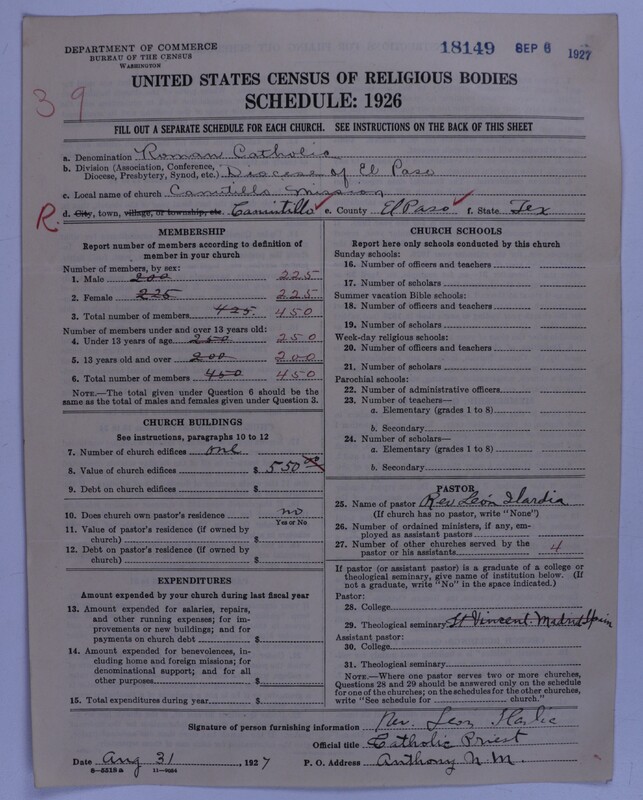 DEPARTMENT OF COMMERCE
BUREAU OF THE CENSUS
WASHINGTON
18149 SEP 6 1927
39
UNITED STATES CENSUS OF RELIGIOUS BODIES
SCHEDULE: 1926
FILL OUT A SEPARATE SCHEDULE FOR EACH CHURCH. SEE INSTRUCTIONS ON THE BACK OF THIS SHEET
a. Denomination Roman Catholic
b. Division (Association, Conference, Diocese, Presbytery, Synod, etc.) Diocese of El Paso
c. Local name of church Canutillo Mission
R. d. City, town, village, or township, etc. Canutillo e. County El Paso f. State Tex
MEMBERSHIP
Report number of members according to definition of member in your church
Number of members, by sex:
1. Male 200 225
2. Female 225 225
3. Total number of members 425 450
Number of members under and over 13 years old:
4. Under 13 years of age 250 250
5. 13 years old and over 200 200
6. Total number of members 450 450
NOTE.—The total given under Question 6 should be the same as the total of males and females given under Question 3.
CHURCH BUILDINGS
See instructions, paragraphs 10 to 12
7. Number of church edifices one
8. Value of church edifices $ 550 00
9. Debt on church edifices $
10. Does church own pastor's residence? no
Yes or No
11. Value of pastor's residence (if owned by church) $
12. Debt on pastor's residence (if owned by church) $
EXPENDITURES
Amount expended by your church during last fiscal year
13. Amount expended for salaries, repairs, and other running expenses; for improvements or new buildings; and for payments on church debt $
14. Amount expended for benevolences, including home and foreign missions; for denominational support; and for all other purposes $
15. Total expenditures during year $
CHURCH SCHOOLS
Report here only schools conducted by this church
Sunday schools:
16. Number of officers and teachers
17. Number of scholars
Summer vacation Bible schools:
18. Number of officers and teachers
19. Number of scholars
Week-day religious schools:
20. Number of officers and teachers
21. Number of scholars
Parochial schools:
22. Number of administrative officers
23. Number of teachers—
a. Elementary (grades 1 to 8)
b. Secondary
24. Number of scholars—
a. Elementary (grades 1 to 8)
b. Secondary
PASTOR
25. Name of pastor Rev León Ilardia
(If church has no pastor, write "None")
26. Number of ordained ministers, if any, employed as assistant pastors
27. Number of other churches served by the pastor or his assistants 4
If pastor (or assistant pastor) is a graduate of a college or theological seminary, give name of institution below. (If not a graduate, write "No" in the space indicated.)
Pastor:
28. College
29. Theological seminary St Vincent Madrid Spain
Assistant pastor:
30. College
31. Theological seminary
NOTE.—Where one pastor serves two or more churches, Questions 28 and 29 should be answered only on the schedule for one of the churches; on the schedules for the other churches, write "See schedule for church."
Signature of person furnishing information Rev. Leon
Official title Catholic Priest
Date Aug 31, 1927 P. O. Address Anthony N. M.
8-5519a 11-9034